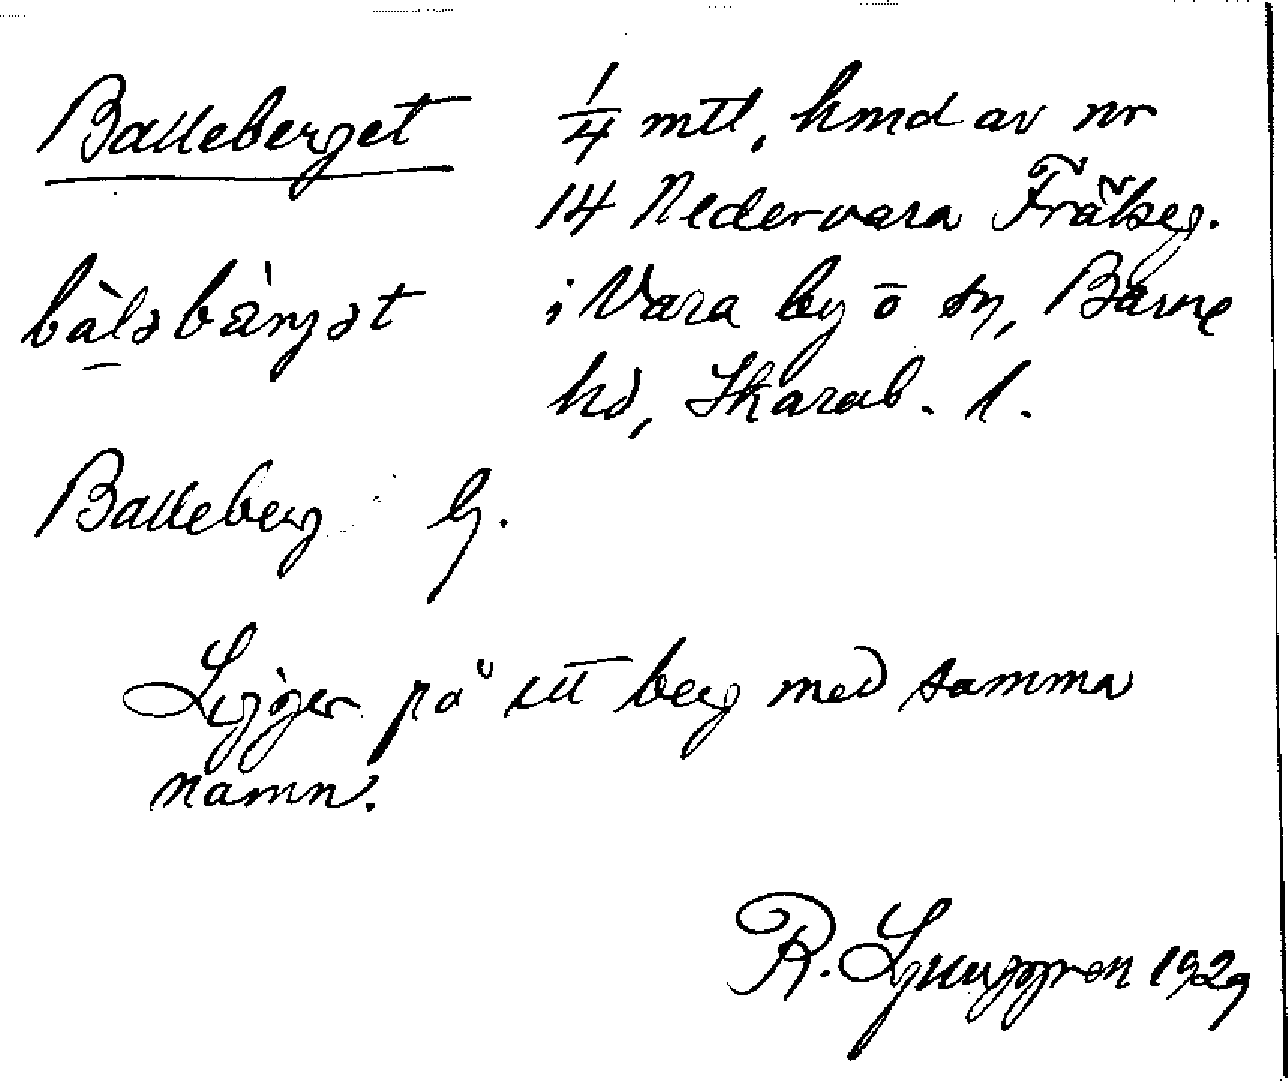 Balleberget
bàləbäŋət
1/4 mtl, hmd av nr
14 Nedervara Frälseg.
i Vara by o sn, Barne
hd, Skarab. l.
Balleberg G.
Ligger på ett berg med samma
namn.
R. Ljunggren 1929